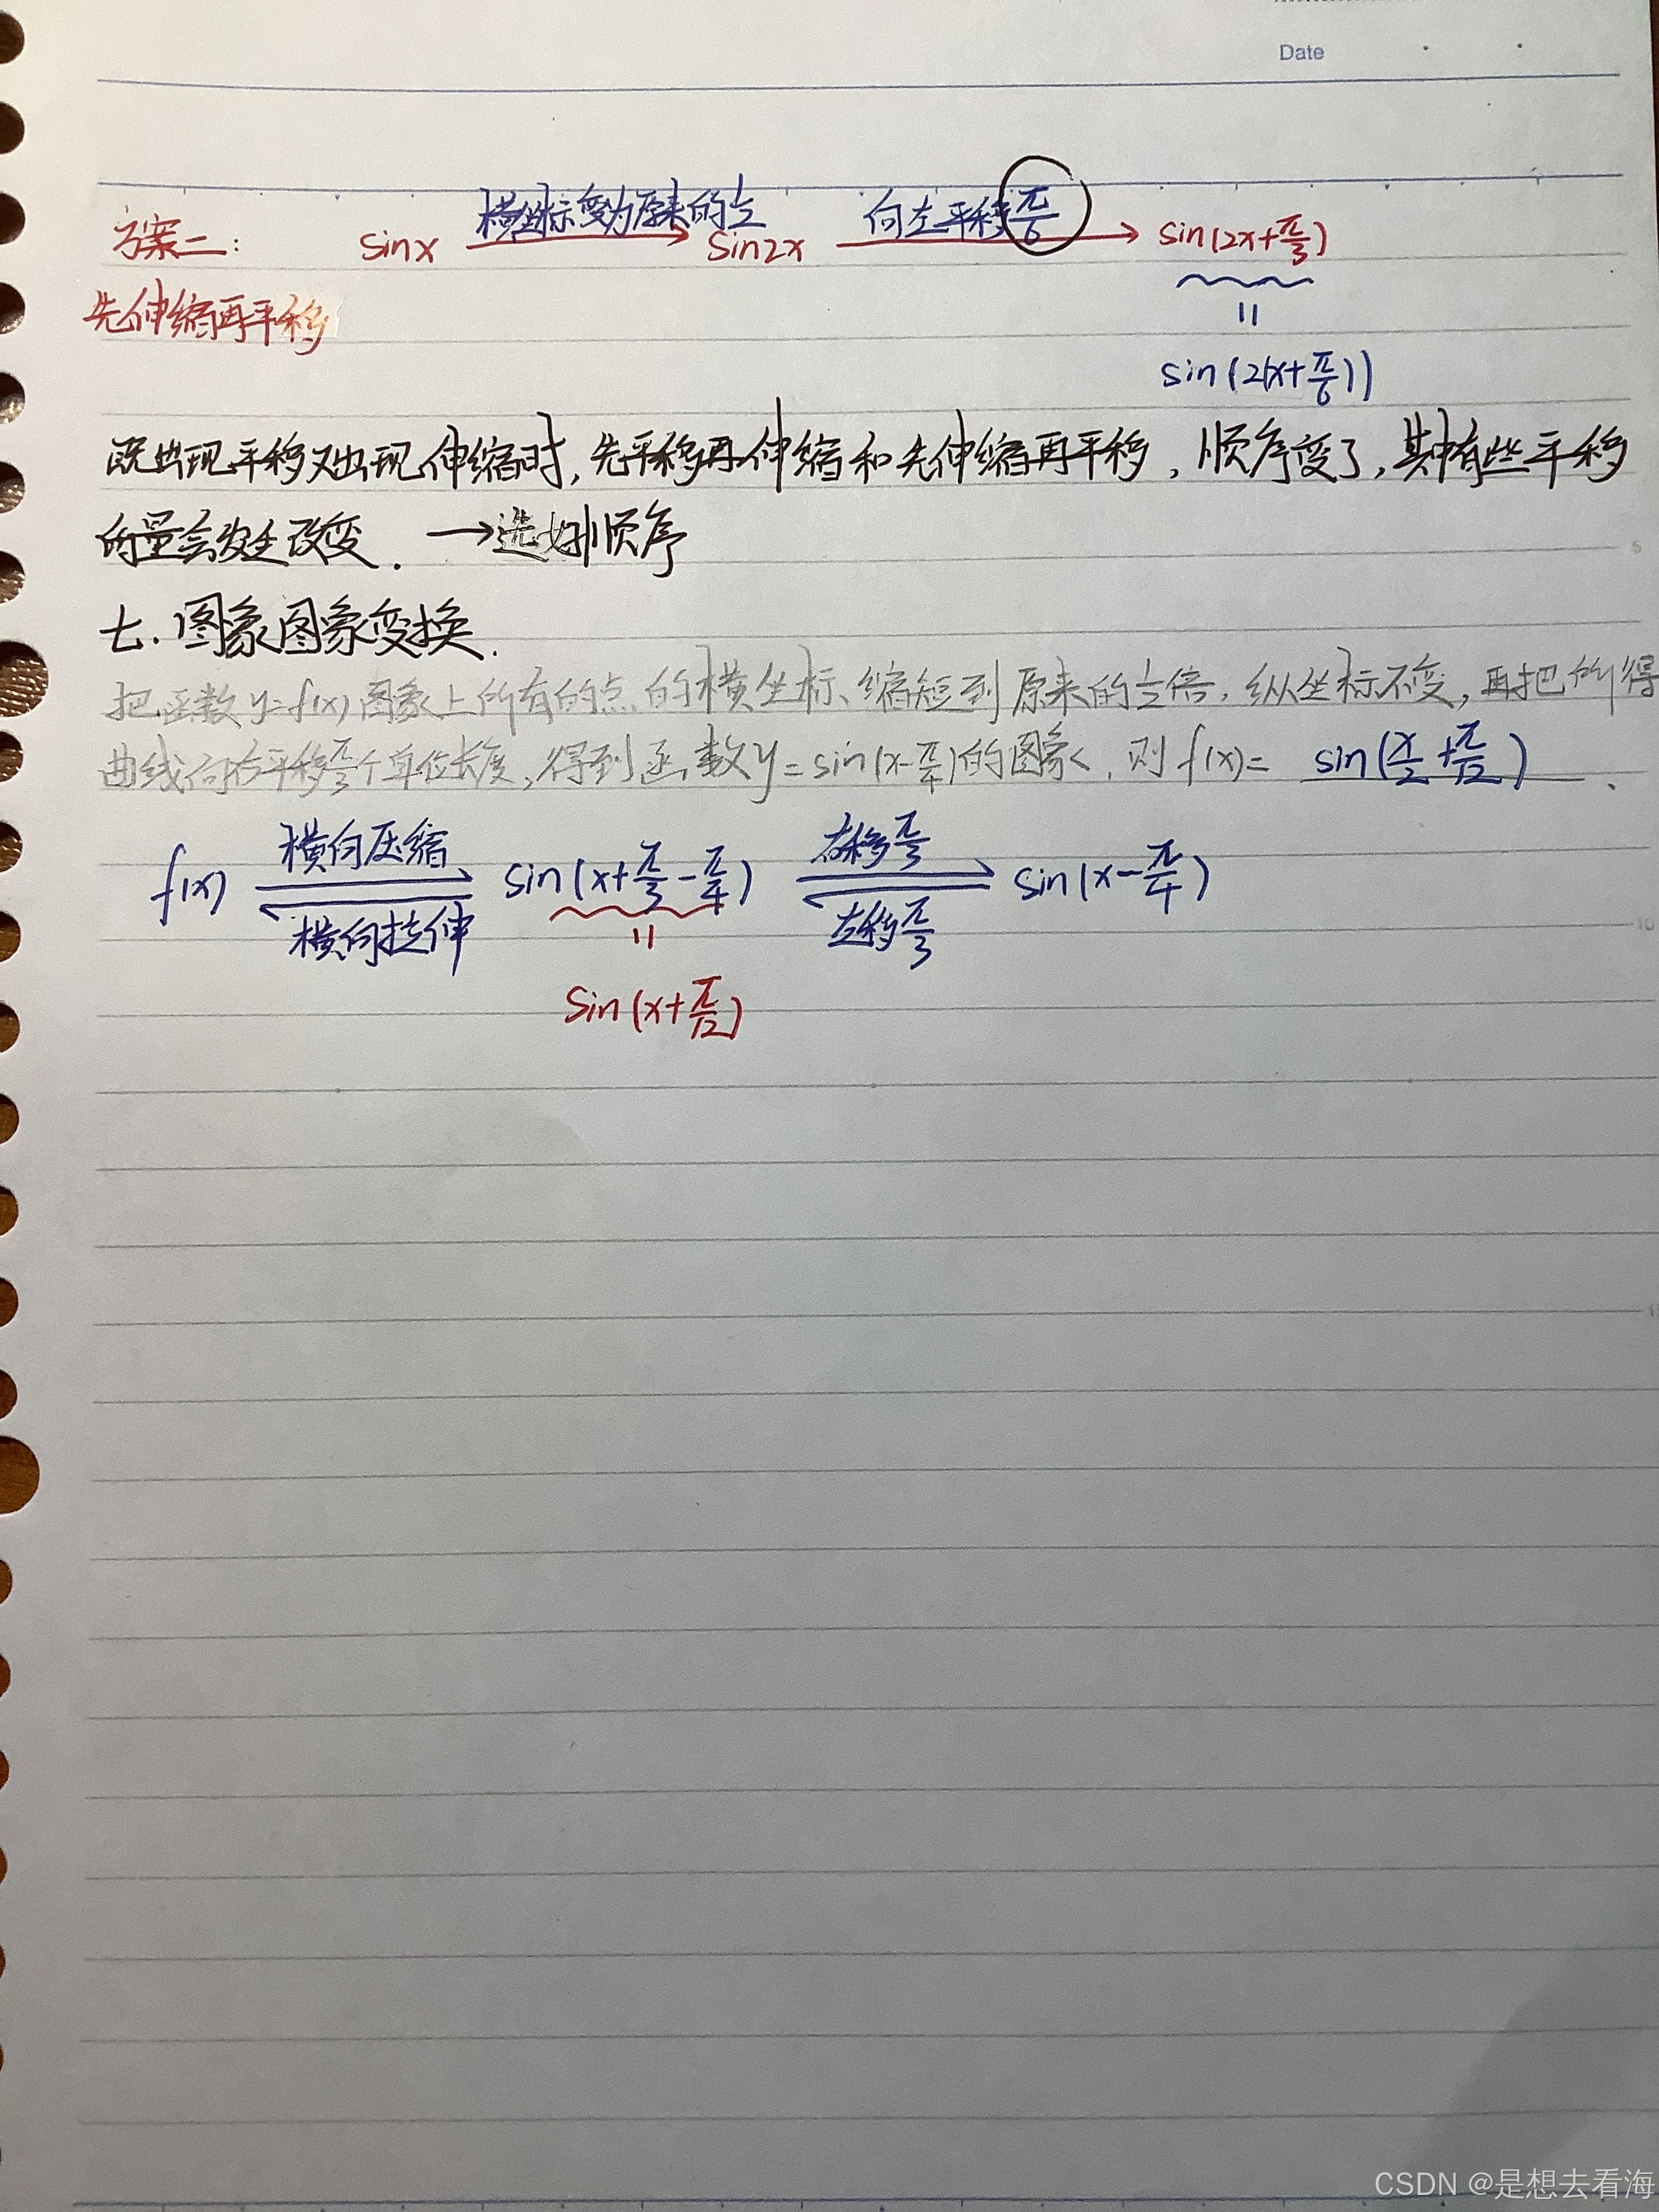 Date
横坐标变为原来的1/2 向左平移π/6
方案二: sinx → sin2x → sin(2x+π/3)
先伸缩再平移
=
sin(2(x+π/6))
既出现平移又出现伸缩时,先平移再伸缩和先伸缩再平移,顺序变了,其中有些平移
的量会发生改变. →选好顺序
七.图象图象变换.
把函数y=f(x)图象上所有的点的横坐标、缩短到原来的1/2倍,纵坐标不变,再把所得
曲线向右平移π/3个单位长度,得到函数y=sin(x-π/4)的图象,则f(x)= sin(x/2+π/12).
横向压缩 右移π/3
f(x) sin(x+π/3-π/4) sin(x-π/4)
横向拉伸 = 左移π/3
sin(x+π/12)
5
10
CSDN @是想去看海